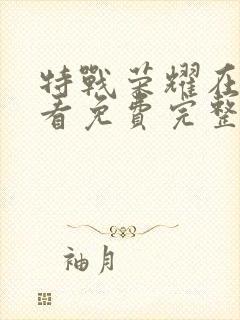 特戰荣耀在
看免費完整
袖月